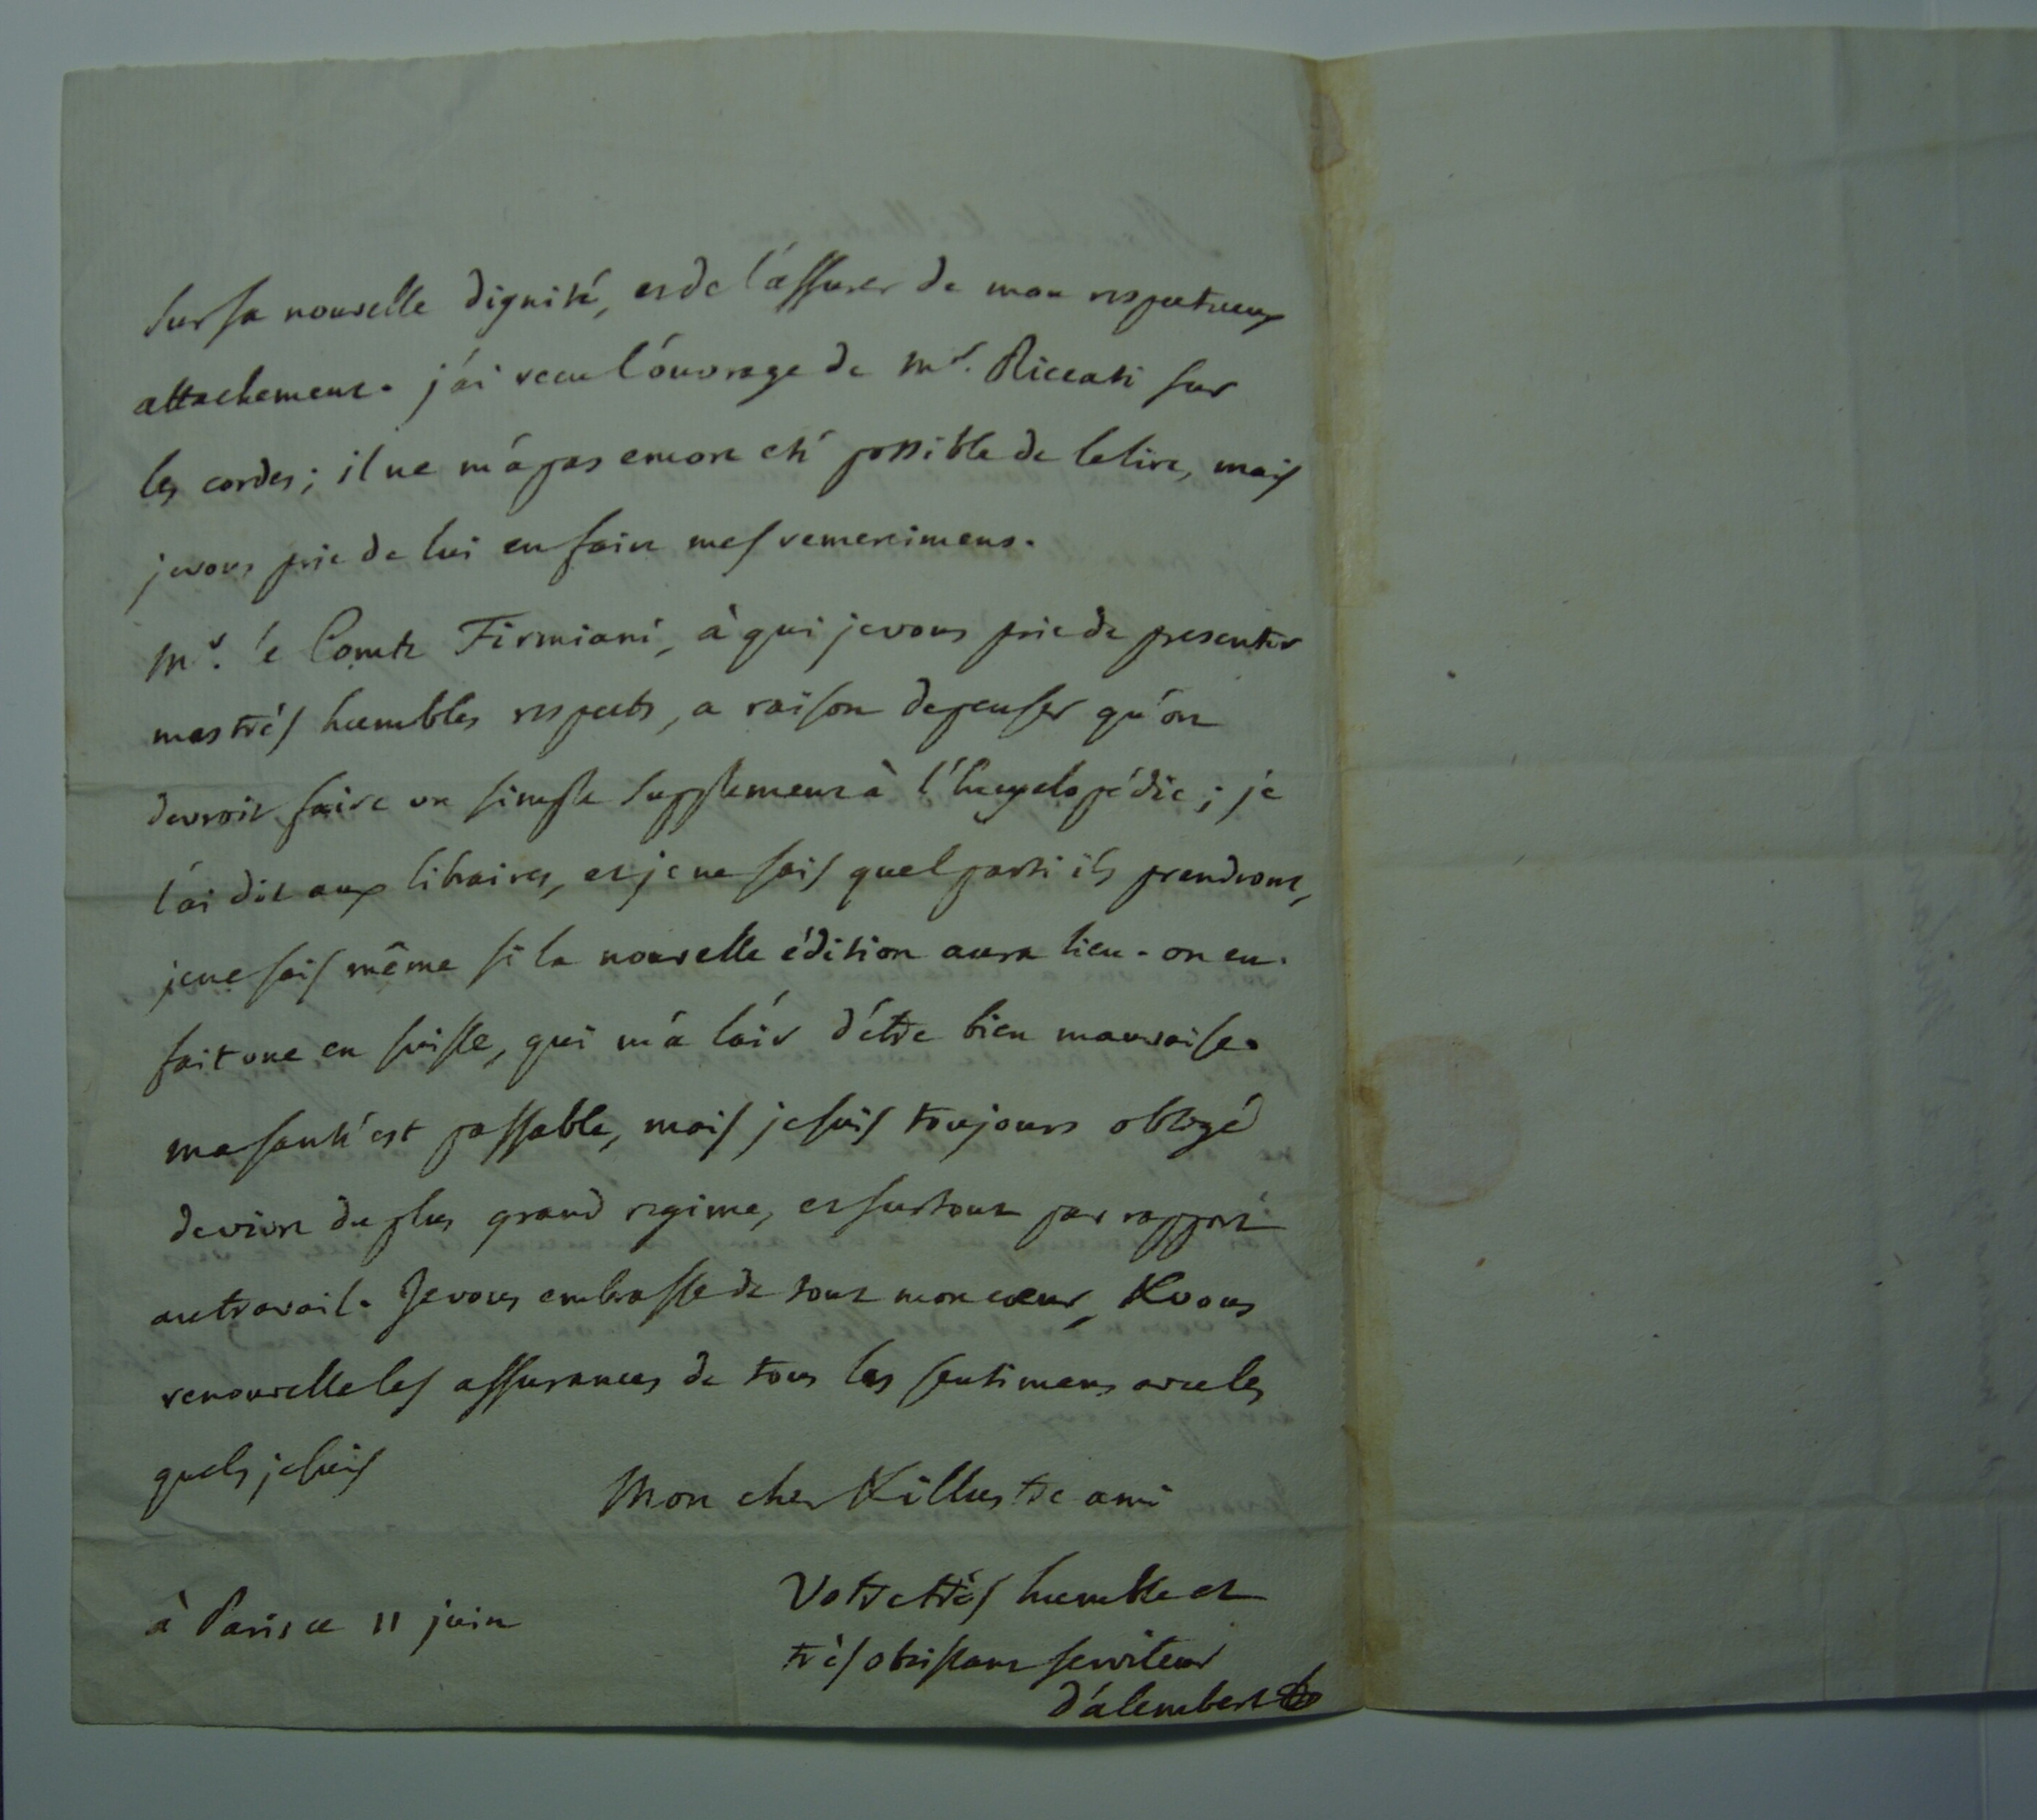 sur sa nouvelle dignité, et de l'assurer de mon respectueux
attachement. j'ai recu l'ouvrage de Mr. Riccati sur
les cordes; il ne m'a pas encore eté possible de le lire, mais
je vous prie de lui en faire mes remercimens.
Mr. le Comte Firmiani, à qui je vous prie de presenter
mes très humbles respects, a raison de penser qu'on
devroit faire un simple supplement à l'Encyclopédie; je
l'ai dit aux libraires, et je ne sais quel parti ils prendront,
je ne sais même si la nouvelle édition aura lieu. on en
fait une en suisse, qui m'a l'air d'étre bien mauvaise.
ma santé est passable, mais je suis toujours obligé
de vivre du plus grand regime, et surtout par rapport
au travail. Je vous embrasse de tout mon cœur, & vous
renouvelle les assurances de tous les sentimens avec les
quels je suis
Mon cher & illustre ami
Votre très humble et
très obeissant serviteur
d'alembert
à Paris ce 11 juin